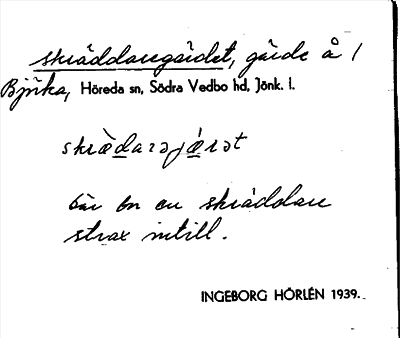 skräddaregärdet, gärde å /
Björka, Höreda sn, Södra Vedbo hd, Jönk. l.
skrä̀daɾəjæ̀ɾət
där bor en skräddare
strax intill.
INGEBORG HÖRLÉN 1939.